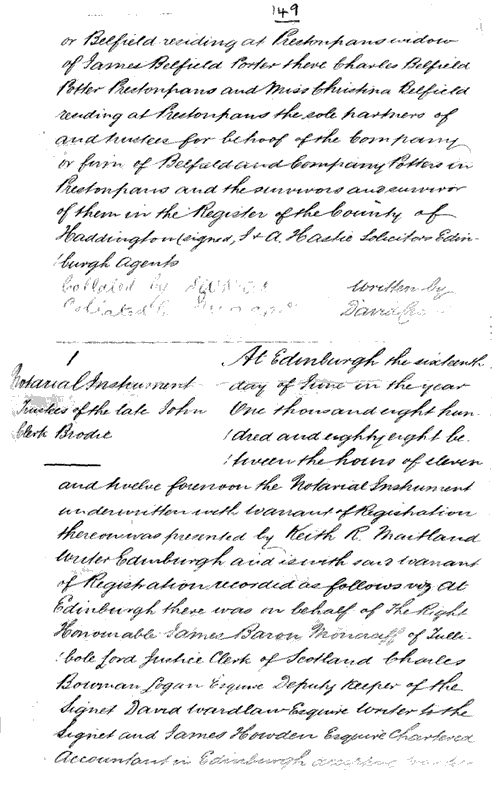 149
or Belfield residing at Prestonpans widow
of James Belfield Potter there Charles Belfield
Potter Prestonpans and Miss Christina Belfield
residing at Prestonpans the sole partners of
and trustees for behoof of the Company
or firm of Belfield and Company Potters in
Prestonpans and the survivors and survivor
of them in the Register of the County of
Haddington (signed, J & A. Hastie Solicitors Edin-
:burgh Agents
Collated by
written by
David
1
Notarial Instrument
Trustees of the late John
Clerk Brodie
At Edinburgh the sixteenth
day of June in the year
One thousand eight hun
:dred and eighty eight be
:tween the hours of eleven
and twelve forenoon the Notarial Instrument
underwritten with warrant of Registration
thereon was presented by Keith R. Maitland
Writer Edinburgh and is with said warrant
of Registration recorded as follows viz At
Edinburgh there was on behalf of The Right
Honourable James Baron Moncreiff of Tulli-
:bole Lord Justice Clerk of Scotland Charles
Bowman Logan Esquire Deputy Keeper of the
Signet David Wardlaw Esquire Writer to the
Signet and James Howden Esquire Chartered
Accountant in Edinburgh